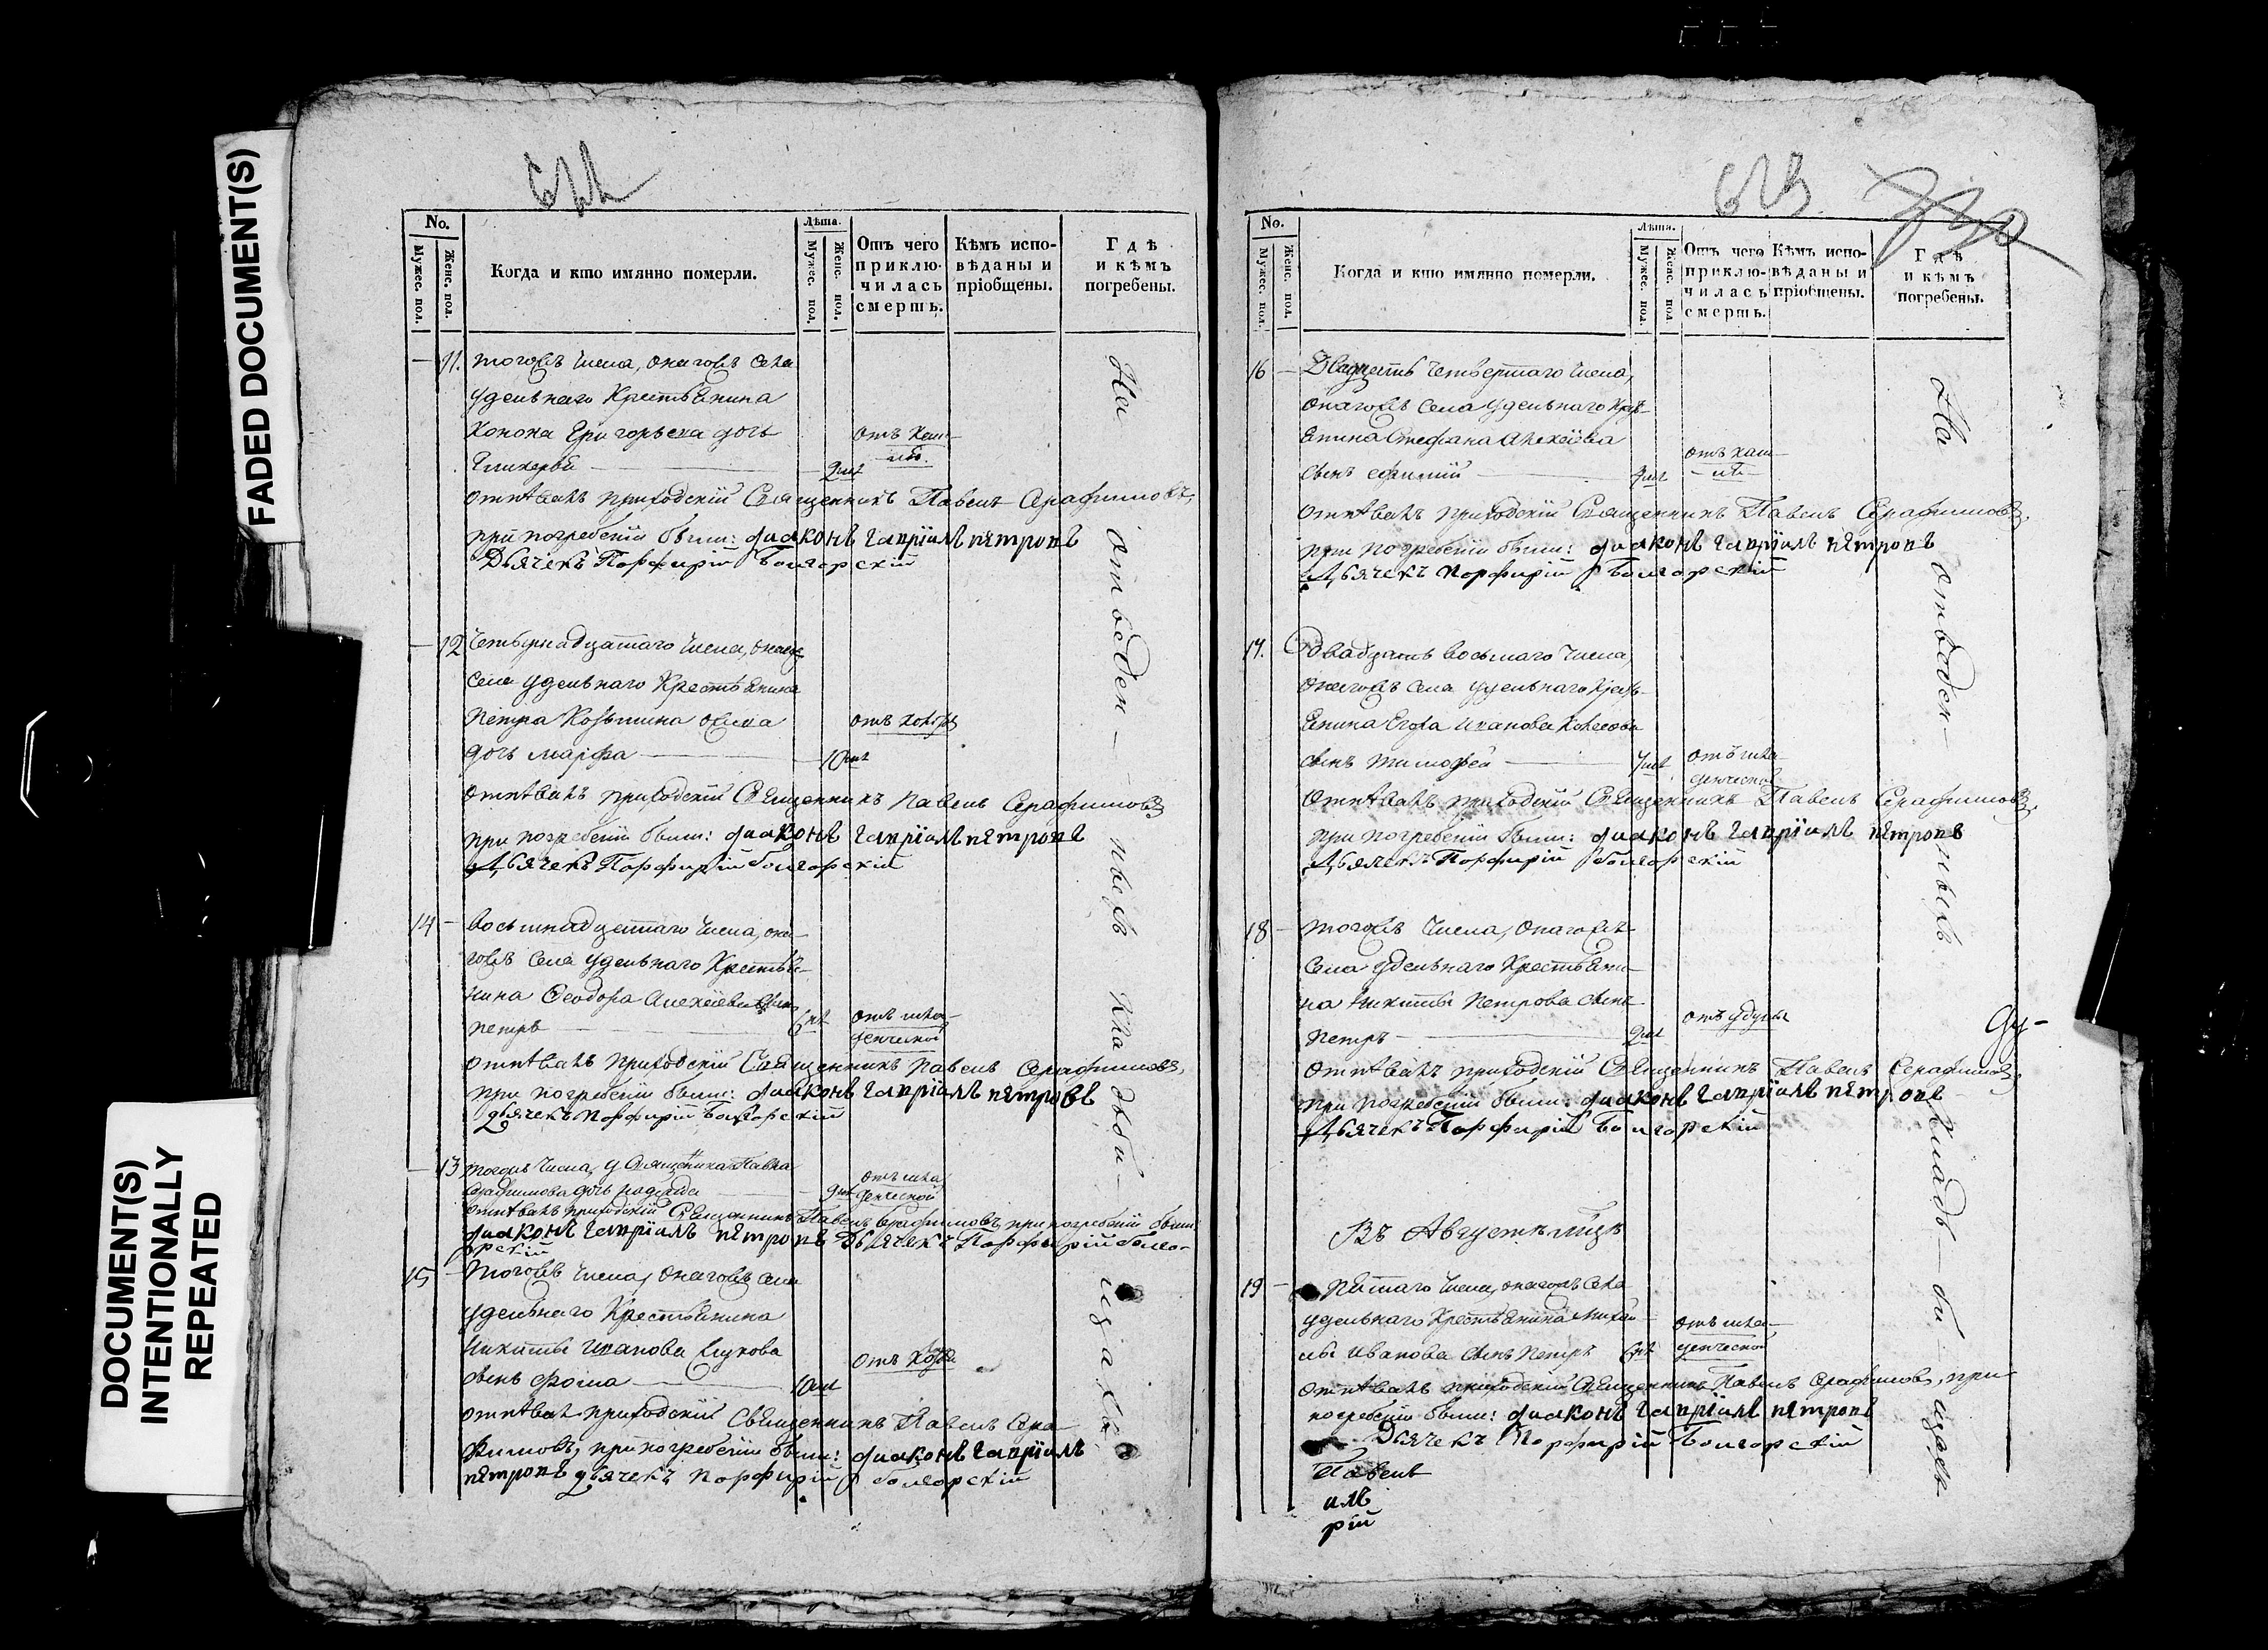 FADED DOCUMENT(S)
DOCUMENT(S)
INTENTIONALLY
REPEATED
No.
Мужес. пол.
Женс. пол.
Когда и кто имянно померли.
Лѣта.
Мужес. пол.
Женс. пол.
Отъ чего
приклю-
чилась
смерть.
Кѣмъ испо-
вѣданы и
пріобщены.
Гдѣ
и кѣмъ
погребены.
— 11. тогожъ числа, онагожъ села
удельнаго Крестьянина
Конона Григорьева дочь
Гликерья — 2 лѣт отъ каш-
ля.
отпѣвалъ приходскій Священникъ Павелъ Серафимовъ,
при погребеніи были: диаконъ Гавріилъ Петровъ
Дьячекъ Порфирій Болгорскій
— 12 Четырнадцатаго числа, онагож
села удельнаго Крестьянина
Петра Козьмина
дочь Марфа — 10 лѣт
отпѣвалъ приходскій Священникъ Павелъ Серафимовъ
при погребеніи были: диаконъ Гавріилъ Петровъ
Дьячекъ Порфирій Болгорскій
14 — Восьмнадцатаго числа, она-
гожъ села удельнаго Крестья-
нина Феодора Алексіева сынъ
Петръ — 6 лѣт отъ мла-
денческой
отпѣвалъ приходскій Священникъ Павелъ Серафимовъ,
при погребеніи были: диаконъ Гавріилъ Петровъ
Дьячекъ Порфирій Болгорскій
— 13 тогожъ числа, у Священника Павла
Серафимова дочь Надежда — отъ мла
денческой
отпѣвалъ приходскій Священникъ Павелъ Серафимовъ, при погребеніи были
диаконъ Гавріилъ Петровъ Дьячекъ Порфирій Болго-
рскій
15 — тогожъ числа, онагожъ села
удельнаго Крестьянина
Никиты Иванова
сынъ Фома — 10 лѣт
отпѣвал приходскій Священникъ Павелъ Сера
фимовъ, при погребеніи были: диаконъ Гавріилъ
Петровъ Дьячекъ Порфирій Болгорскій
На отведен — номъ кла дби — ща ха
No.
Мужес. пол.
Женс. пол.
Когда и кто имянно померли.
Лѣта.
Мужес. пол.
Женс. пол.
Отъ чего
приклю-
чилась
смерть.
Кѣмъ испо-
вѣданы и
пріобщены.
Гдѣ
и кѣмъ
погребены.
16 — Двадцать четвертаго числа,
онагожъ села удельнаго Крест-
янина Стефана Алексіева
сынъ Ефимій — отъ каш-
ля
отпѣвалъ приходскій Священникъ Павелъ Серафимовъ,
при погребеніи были: диаконъ Гавріилъ Петровъ
Дьячекъ Порфирій Болгорскій
17. Двадцать восьмаго числа,
онагожъ села удельнаго Кресть-
янина Егора Иванова
сынъ Тимофей — отъ мла-
денческой
Отпѣвалъ приходскій Священникъ Павелъ Серафимовъ,
при погребеніи были: диаконъ Гавріилъ Петровъ
Дьячекъ Порфирій Болгорскій
18 — тогожъ числа, онагожъ
села удельнаго Крестьяни-
на Никиты Петрова сынъ
Петръ — 2 лѣт
отпѣвалъ приходскій Священникъ Павелъ Серафимовъ,
при погребеніи были: диаконъ Гавріилъ Петровъ
Дьячекъ Порфирій Болгорскій
Въ Августѣ мцѣ
19 — Пятаго числа, онагожъ села
удельнаго Крестьянина Михаи-
лы Иванова сынъ Петръ отъ мла-
денческой
отпѣвалъ приходскій Священникъ Павелъ Серафимовъ, при
погребеніи были: диаконъ Гавріилъ Петровъ
Дьячекъ Порфирій Болгорскій
Павелъ
илъ
рій
На отведен — номъ кладъ — би — щахъ